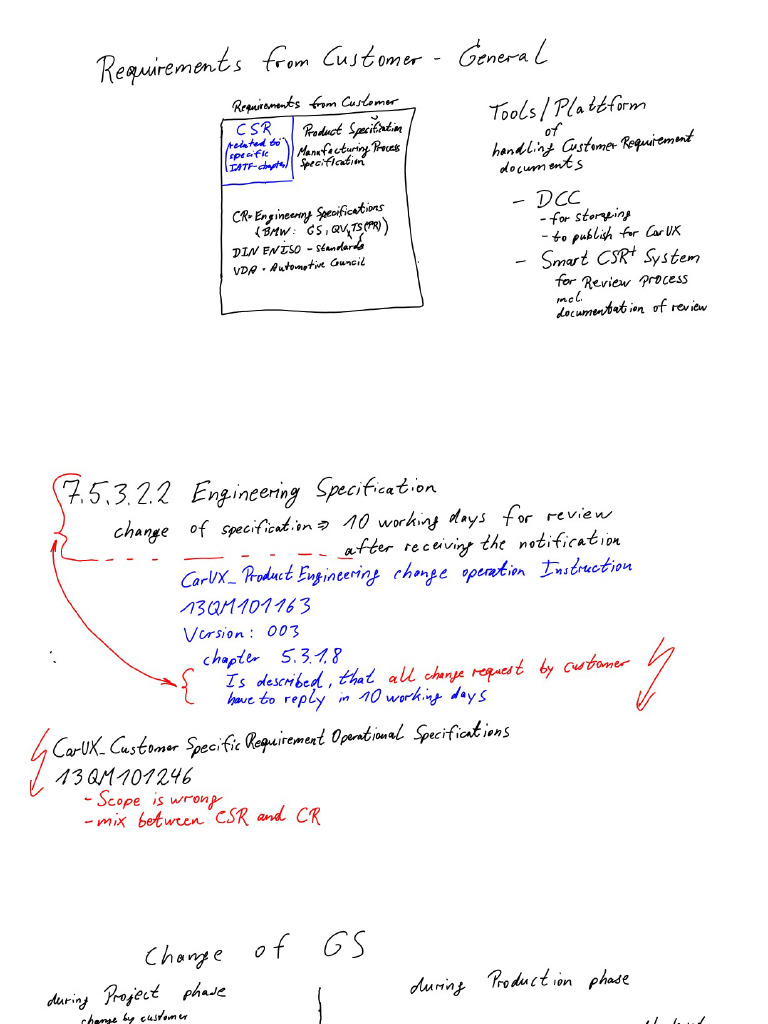 Requirements from Customer - General
Requirements from Customer
CSR
(related to
specific
IATF-chapter)
Product Specification
Manufacturing Process
Specification
CR=Engineering Specifications
(BMW: GS, QV, TS(PR))
DIN EN ISO - standards
VDA - Automotive Council
Tools/Plattform
of
handling Customer Requirement
documents
- DCC
- for storaging
- to publish for CarUX
- Smart CSR+ System
for Review process
incl.
documentation of review
7.5.3.2.2 Engineering Specification
change of specification => 10 working days for review
after receiving the notification
CarUX_Product Engineering change operation Instruction
13QM101163
Version: 003
chapter 5.3.1.8
Is described, that all change request by customer
have to reply in 10 working days
CarUX_Customer Specific Requirement Operational Specifications
13QM101246
- Scope is wrong
- mix between CSR and CR
Change of GS
during Project phase
change by customer
during Production phase